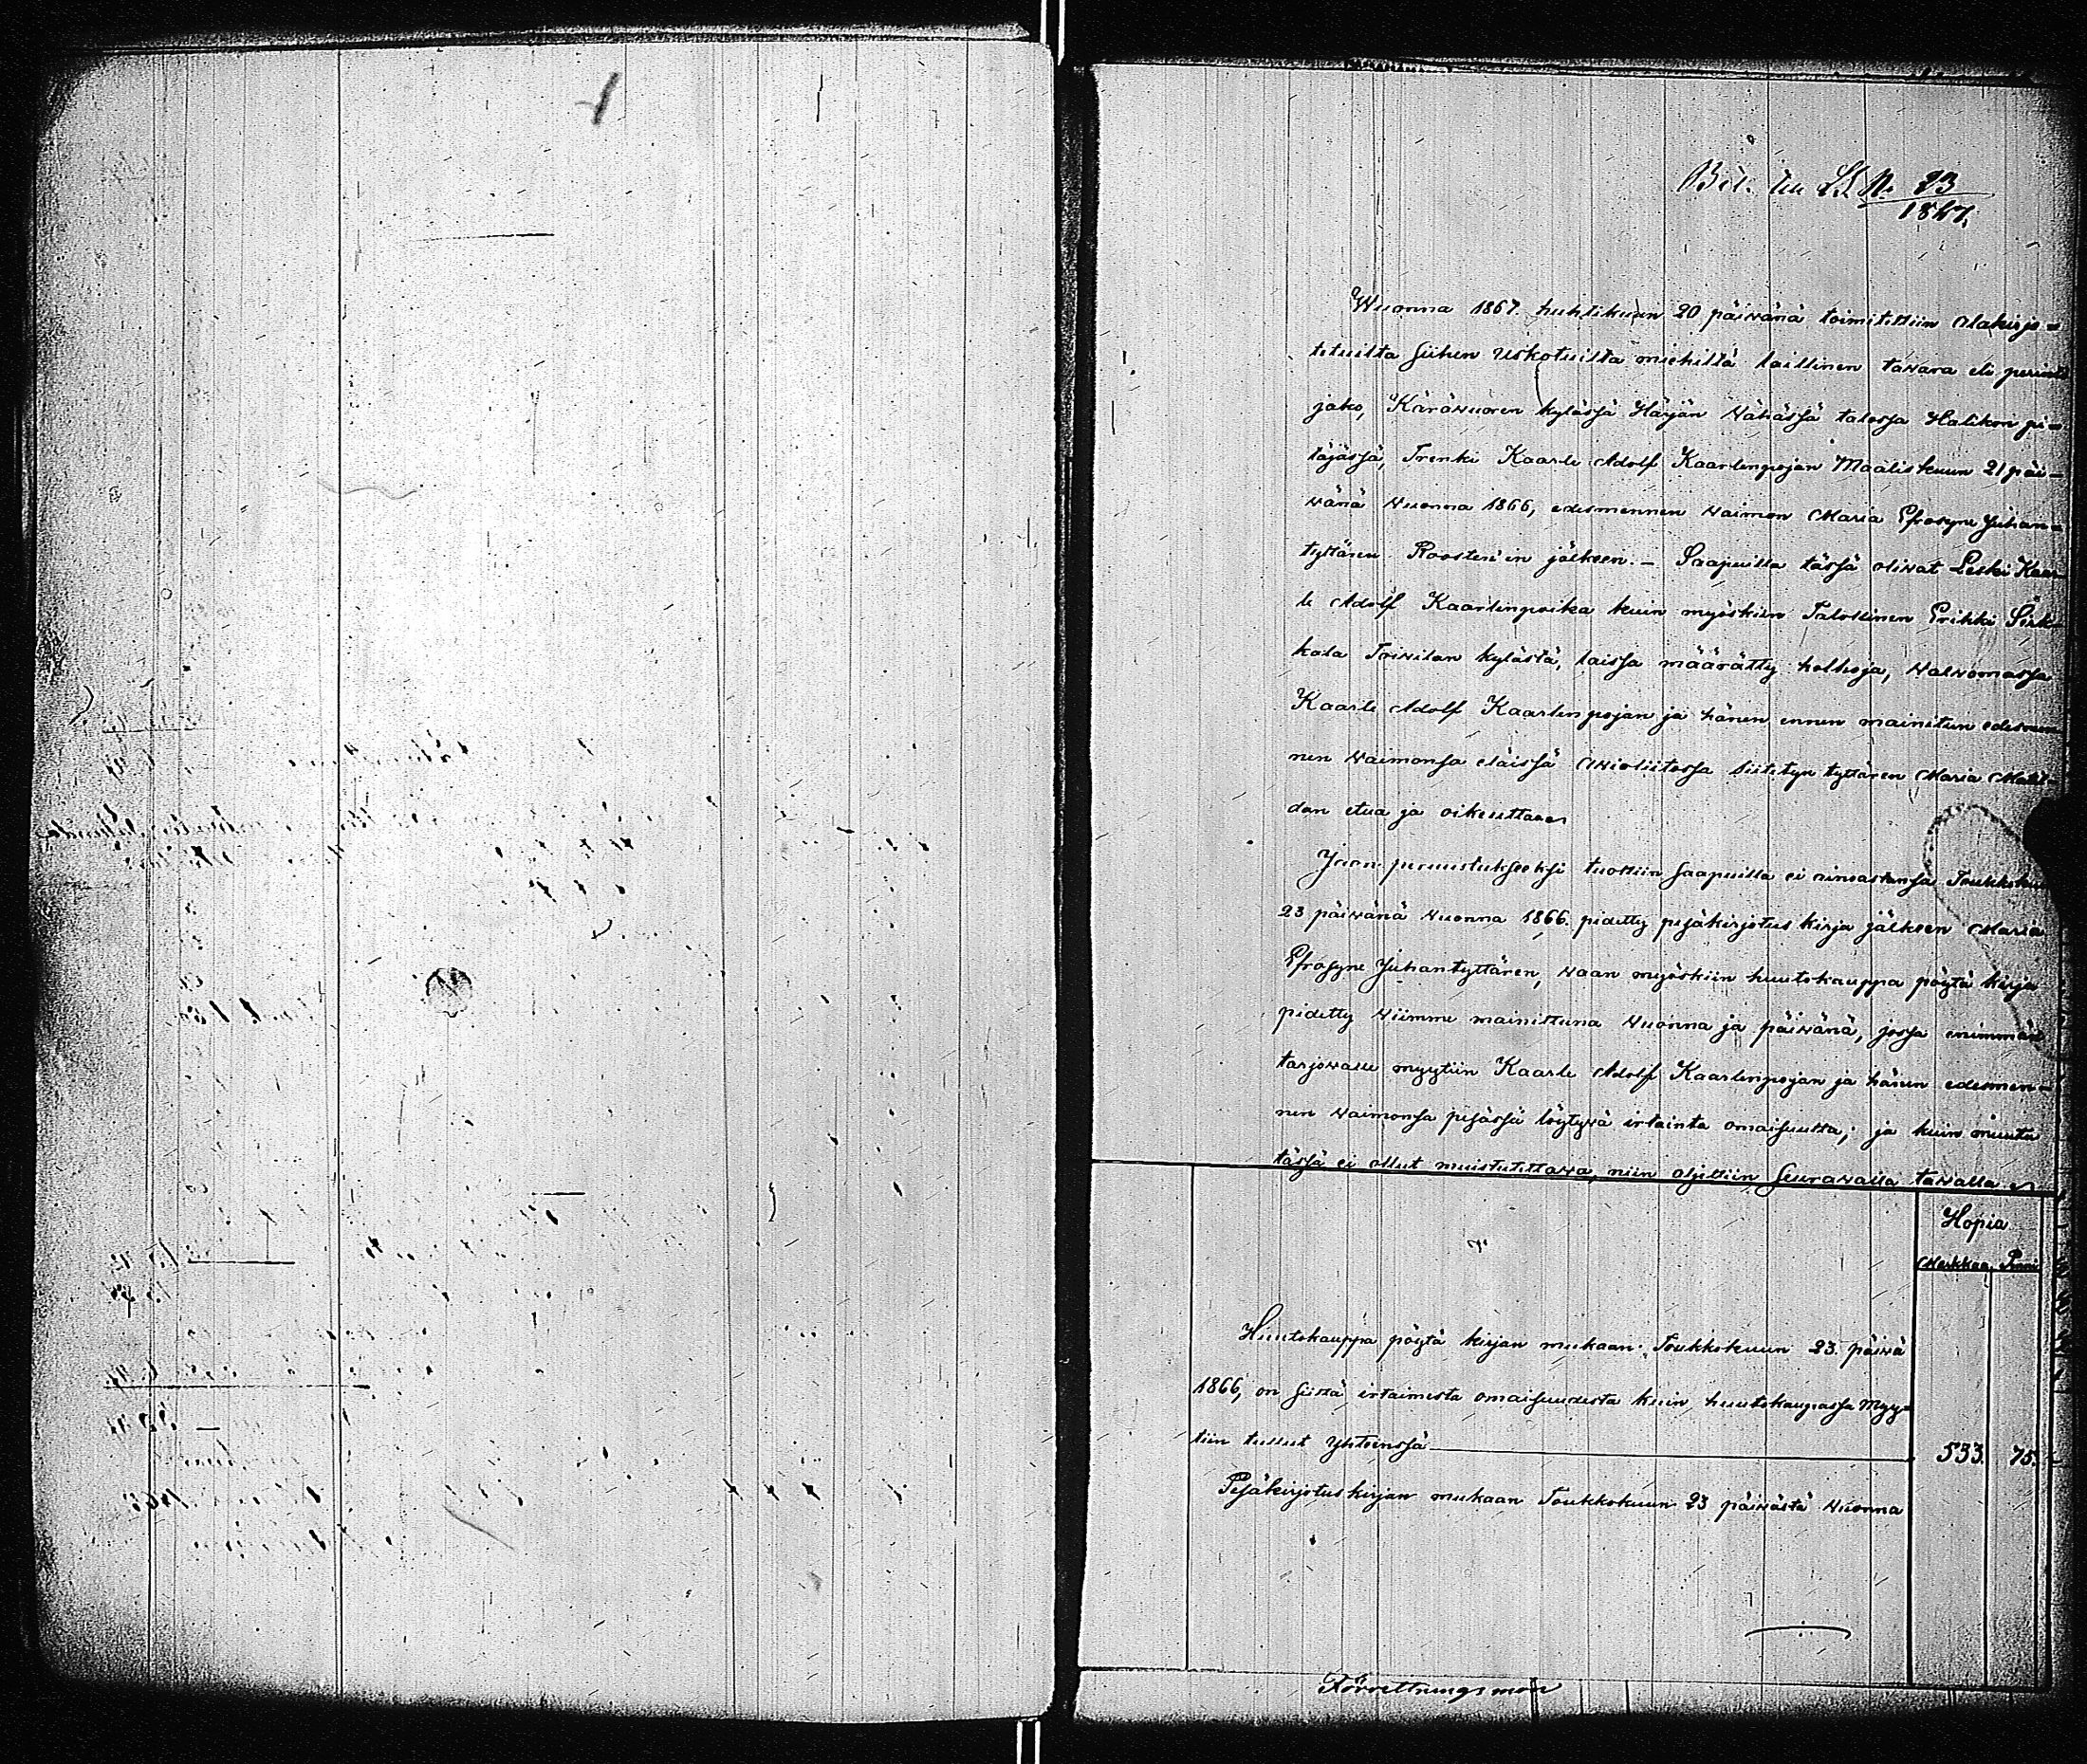 N: 23
1867.
Wuonna 1867. huhtikuun 20 päiwänä toimitettiin allakirjo-
tetuilta siihen uskotuilta miehiltä laillinen tawara eli perintö
jako, Käräwuoren kylässä Härjän Wähässä talossa Halikon pi-
täjässä, Trenki Kaarle Adolf Kaarlenpojan Maaliskuun 21 päi-
wänä wuonna 1866, edesmennen waimon Maria Efrosyne Juhan-
tyttären Roosteri'in jälkeen. - Saapuilla tässä oliwat Leski Kaar-
le Adolf Kaarlenpoika kuin myöskiin Talollinen Erikki Sirk-
kala Toiwilan kylästä, laissa määrätty holhoja, walwomassa
Kaarle Adolf Kaarlenpojan ja hänen ennen mainitun edesmen-
nen waimonsa eläissä Awioliitossa siitetyn tyttären Maria Matil-
dan etua ja oikeuttaan
Jaon perustukseksi tuottiin saapuilla ei ainoastansa Toukkokuun
23 päiwänä wuonna 1866. pidetty pesäkirjotus kirja jälkeen Maria
Efrosyne Juhantyttären, waan myöskiin huutokauppa pöytä kirja
pidetty wiimme mainittuna wuonna ja päiwänä, jossa enimmän
tarjowalle myytiin Kaarle Adolf Kaarlenpojan ja hänen edesmen-
nen waimonsa pesässä löytywä irtainta omaisuutta; ja kuin muuta
tässä ei ollut muistutettawa, niin osittiin seurawalla tawalla
Hopia
Markkaa Penni
Huutokauppa pöytä kirjan mukaan Toukkokuun 23. päiwä
1866, on siittä irtaimesta omaisuudesta kuin huutokaupassa myy-
tiin tullut yhteensä 533. 75.
Pesäkirjotuskirjan mukaan Toukkokuun 23 päiwästä wuonna
Förrettnings män